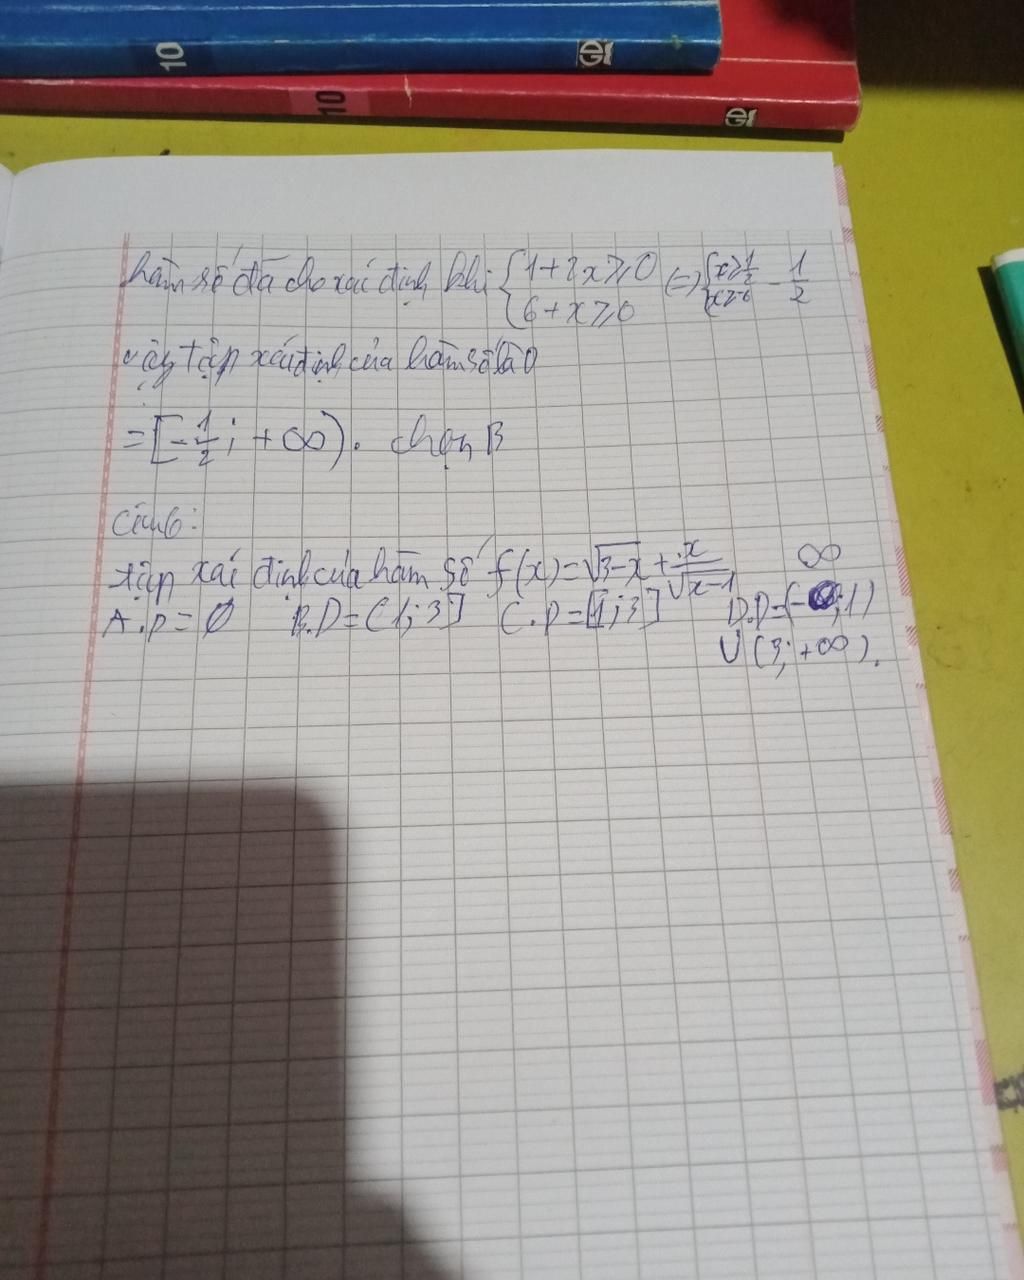 10
GD
10
GD
hàm số đã cho xác định khi { 1+2x ≥ 0 6+x ≥ 0 <=> { x ≥ 1/2 x ≥ -6 - 1/2
vậy tập xác định của hàm số là D
= [-1/2; +∞). chọn B
câu 6:
tập xác định của hàm số f(x) = √3-x + x/√x-1
A. D = ∅ B. D = (1; 3] C. D = [1; 3] D. D = (-∞; 1)
U (3; +∞).